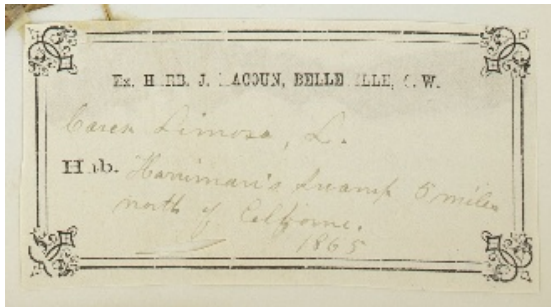 Ex. H RB. J. ACOUN, BELLE ILLE, C. W.
Carex limosa, L.
H b. Harriman's Swamp 5 miles
north of
1865